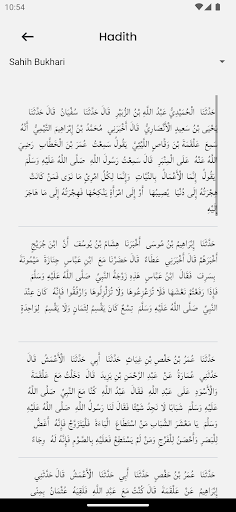 10:54
Hadith
Sahih Bukhari
حَدَّثَنَا الْحُمَيْدِيُّ عَبْدُ اللَّهِ بْنُ الزُّبَيْرِ قَالَ حَدَّثَنَا سُفْيَانُ قَالَ حَدَّثَنَا
يَحْيَى بْنُ سَعِيدٍ الْأَنْصَارِيُّ قَالَ أَخْبَرَنِي مُحَمَّدُ بْنُ إِبْرَاهِيمَ التَّيْمِيُّ أَنَّهُ
سَمِعَ عَلْقَمَةَ بْنَ وَقَّاصٍ اللَّيْثِيَّ يَقُولُ سَمِعْتُ عُمَرَ بْنَ الْخَطَّابِ رَضِيَ
اللَّهُ عَنْهُ عَلَى الْمِنْبَرِ قَالَ سَمِعْتُ رَسُولَ اللَّهِ صَلَّى اللَّهُ عَلَيْهِ وَسَلَّمَ
يَقُولُ إِنَّمَا الْأَعْمَالُ بِالنِّيَّاتِ وَإِنَّمَا لِكُلِّ امْرِئٍ مَا نَوَى فَمَنْ كَانَتْ
هِجْرَتُهُ إِلَى دُنْيَا يُصِيبُهَا أَوْ إِلَى امْرَأَةٍ يَنْكِحُهَا فَهِجْرَتُهُ إِلَى مَا هَاجَرَ
إِلَيْهِ
حَدَّثَنَا إِبْرَاهِيمُ بْنُ مُوسَى أَخْبَرَنَا هِشَامُ بْنُ يُوسُفَ أَنَّ ابْنَ جُرَيْجٍ
أَخْبَرَهُمْ قَالَ أَخْبَرَنِي عَطَاءٌ قَالَ حَضَرْنَا مَعَ ابْنِ عَبَّاسٍ جِنَازَةَ مَيْمُونَةَ
بِسَرِفَ فَقَالَ ابْنُ عَبَّاسٍ هَذِهِ زَوْجَةُ النَّبِيِّ صَلَّى اللَّهُ عَلَيْهِ وَسَلَّمَ
فَإِذَا رَفَعْتُمْ نَعْشَهَا فَلَا تُزَعْزِعُوهَا وَلَا تُزَلْزِلُوهَا وَارْفُقُوا فَإِنَّهُ كَانَ عِنْدَ
النَّبِيِّ صَلَّى اللَّهُ عَلَيْهِ وَسَلَّمَ تِسْعٌ كَانَ يَقْسِمُ لِثَمَانٍ وَلَا يَقْسِمُ لِوَاحِدَةٍ
حَدَّثَنَا عُمَرُ بْنُ حَفْصِ بْنِ غِيَاثٍ حَدَّثَنَا أَبِي حَدَّثَنَا الْأَعْمَشُ قَالَ
حَدَّثَنِي عُمَارَةُ عَنْ عَبْدِ الرَّحْمَنِ بْنِ يَزِيدَ قَالَ دَخَلْتُ مَعَ عَلْقَمَةَ
وَالْأَسْوَدِ عَلَى عَبْدِ اللَّهِ فَقَالَ عَبْدُ اللَّهِ كُنَّا مَعَ النَّبِيِّ صَلَّى اللَّهُ
عَلَيْهِ وَسَلَّمَ شَبَابًا لَا نَجِدُ شَيْئًا فَقَالَ لَنَا رَسُولُ اللَّهِ صَلَّى اللَّهُ عَلَيْهِ
وَسَلَّمَ يَا مَعْشَرَ الشَّبَابِ مَنْ اسْتَطَاعَ الْبَاءَةَ فَلْيَتَزَوَّجْ فَإِنَّهُ أَغَضُّ
لِلْبَصَرِ وَأَحْصَنُ لِلْفَرْجِ وَمَنْ لَمْ يَسْتَطِعْ فَعَلَيْهِ بِالصَّوْمِ فَإِنَّهُ لَهُ وِجَاءٌ
حَدَّثَنَا عُمَرُ بْنُ حَفْصٍ حَدَّثَنَا أَبِي حَدَّثَنَا الْأَعْمَشُ قَالَ حَدَّثَنِي
إِبْرَاهِيمُ عَنْ عَلْقَمَةَ قَالَ كُنْتُ مَعَ عَبْدِ اللَّهِ فَلَقِيَهُ عُثْمَانُ بِمِنًى